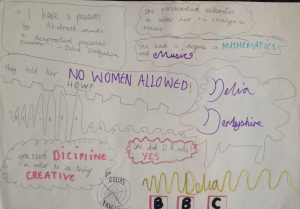 "I have a passion
for Abstract sounds
- Delia Derbyshire
She persuaded authorities
to allow her to change to
music.
She had a degree in MATHEMATICS
and Music
They told her NO WOMEN ALLOWED!
HOW?
Delia
Derbyshire
you need DICIPLINE
in order to be truly
CREATIVE
She did Dr. Who
YES
DELIAS
Delia
B B C